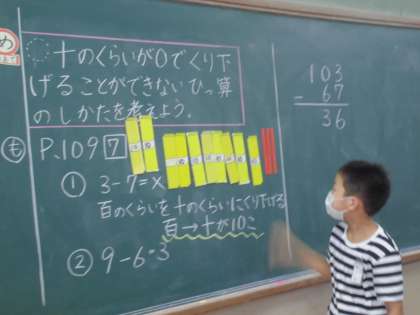 め
十のくらいが0でくり下
げることができないひっ算
のしかたを考えよう。
も P.109 7
① 3-7=×
百のくらいを十のくらいにくり下げる
百→十が10こ
② 9-6=3
103
- 67
36